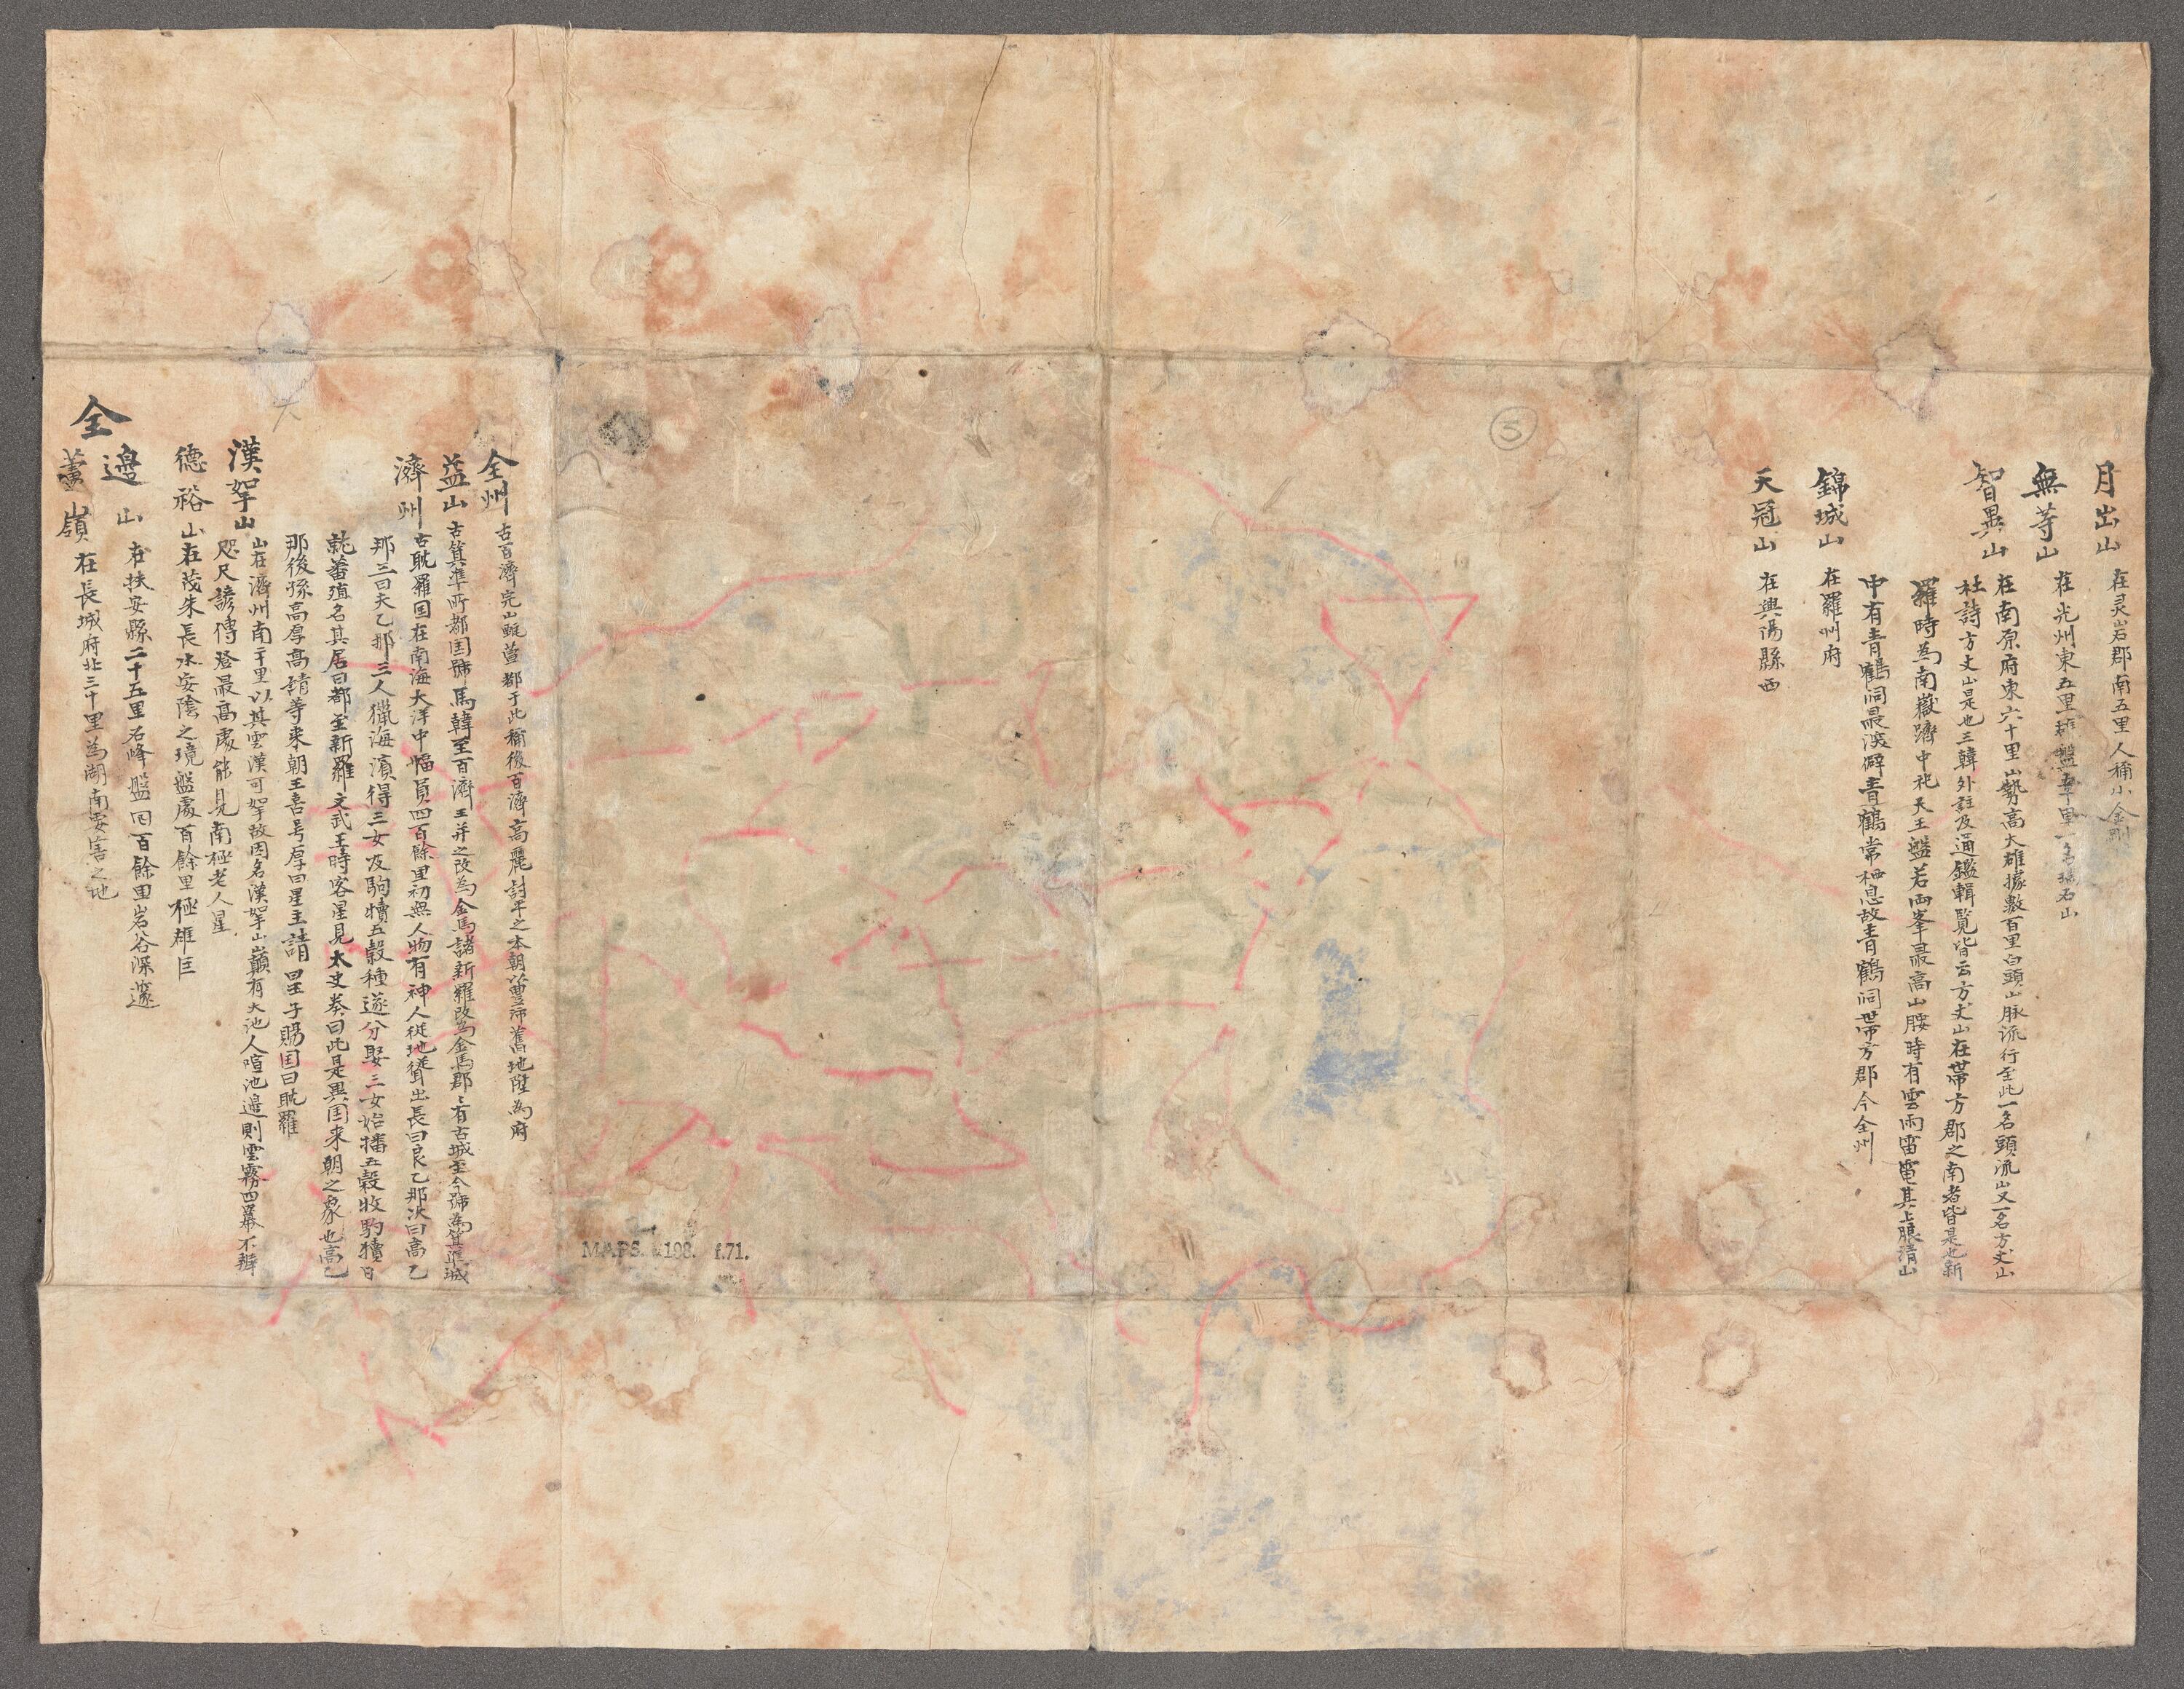 月出山 在灵岩郡南五里人稱小金剛
無等山 在光州東五里 一名瑞石山
智異山 在南原府東六十里山勢高大雄據數百里白頭山脉流行至此一名頭流山又一名方丈山
杜詩方丈山是也三韓外註及通鑑輯覽皆云方丈山在帶方郡之南者皆是也新
羅時為南嶽躋中祀天王盤若兩峯最高山腰時有雲雨雷電其上恨清山
中有青鶴洞最深僻青鶴常栖息故青鶴洞世帶方郡今全州
錦城山 在羅州府
天冠山 在興陽縣西
5
全州 古百濟完山甄萱都于此稱後百濟高麗討平之本朝以豊沛舊地陞為府
益山 古箕準所都国號馬韓至百濟王并之改為金馬諸新羅改為金馬郡郡有古城至今號為箕準城
濟州 古耽羅国在南海大洋中幅員四百餘里初無人物有神人從地聳出長曰良乙那次曰高乙
那三曰夫乙那三人獵海濱得三女及駒犢五穀種遂分娶三女始播五穀牧駒犢日
就蕃殖名其居曰都至新羅文武王時客星見太史奏曰此是異国来朝之象也高乙
那後孫高厚高清等来朝王喜号厚曰星主請曰王子賜国曰耽羅
漢挐山 山在濟州南二十里以其雲漢可挐故因名漢挐山巓有大池人喧池邉則雲霧四羃不辨
咫尺諺傳登最高處能見南極老人星
德裕山 在茂朱長水安陰之境盤處百餘里極雄巨
邉山 在扶安縣二十五里石峰盤回百餘里岩谷深邃
蘆嶺 在長城府北三十里為湖南要害之地
全
MAPS. 198. f.71.